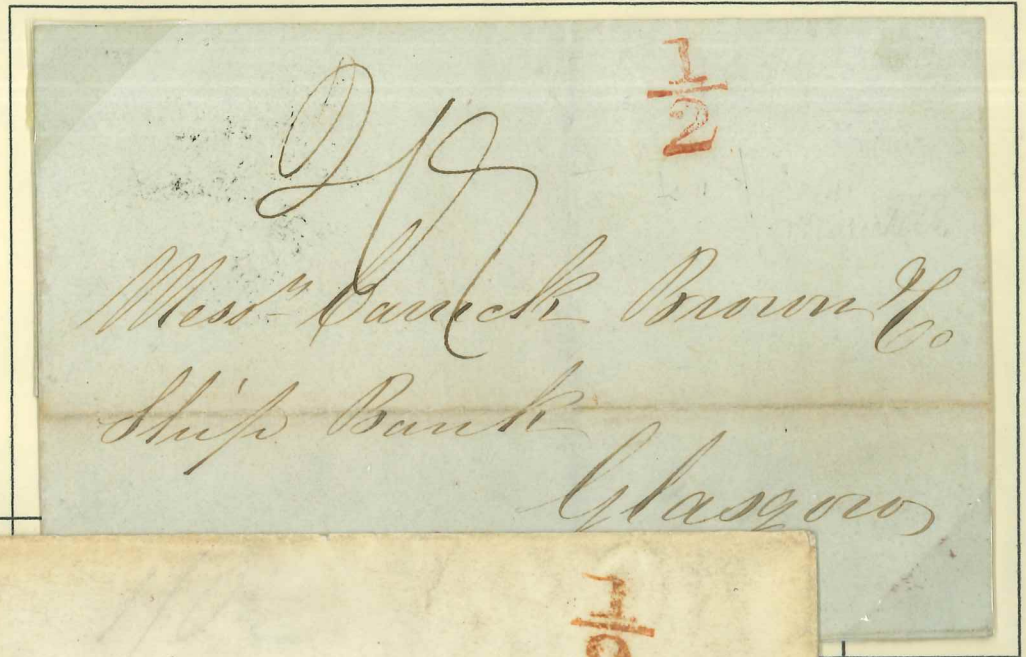 1
2
2/7
Messrs Carrick Brown & Co
Ship Bank
Glasgow
1
2